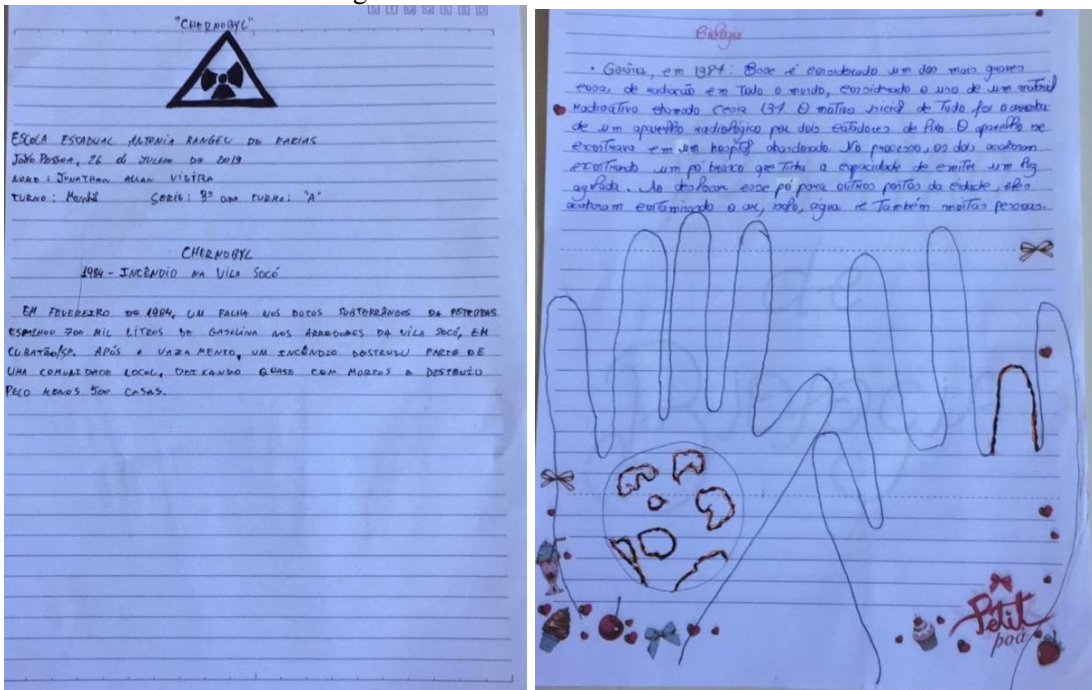 "CHERNOBYL"
ESCOLA ESTADUAL ANTONIA RANGEL DE FARIAS
JOÃO PESSOA, 26 de JULHO DE 2019
NOME: JONATHAN ALLAN VIEIRA
TURNO: Manhã SERIE: 9º ano TURMA: "A"
CHERNOBYL
1984 - INCÊNDIO NA VILA SOCÓ
EM FEVEREIRO DE 1984, UM FALHA NOS DUTOS SUBTERRÂNEOS DA PETROBRAS
ESPALHOU 700 MIL LITROS DE GASOLINA NOS ARREDORES DA VILA SOCÓ, EM
CUBATÃO/SP. APÓS O VAZAMENTO, UM INCÊNDIO DESTRUIU PARTE DE
UMA COMUNIDADE LOCAL, DEIXANDO QUASE CEM MORTOS E DESTRUIU
PELO MENOS 500 CASAS.
Biologia
em 1987: Esse é considerado um dos mais graves
casos de radiação em Todo o mundo, considerado o uso de um material
Radioativo Cesio 137. O motivo inicial de Tudo foi
de um aparelho radiológico por dois catadores de lixo. O aparelho se
encontrava em um hospital abandonado. No processo, os dois acabaram
encontrando um pó branco que Tinha a capacidade de emitir um luz
Ao deslocar esse pó para outros pontos da cidade, eles
acabaram contaminando o ar, solo, água e Também muitas pessoas.
Petit
poá